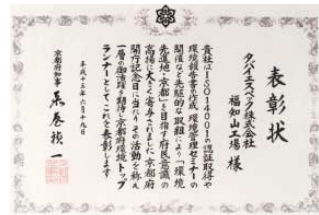 表彰状
タバイエスペック株式会社
福知山工場 様
貴社はISO14001の認証取得や
環境報告書の作成 環境管理セミナーの
開催など先駆的な取組により「環境
先進地・京都」を目指す府民意識の
高揚に大きく寄与されました 京都府
開庁記念日に当り その活動を称え
一層の御活躍を期待し京都府環境トップ
ランナーとしてこれを表彰します
平成十五年六月十九日
京都府知事